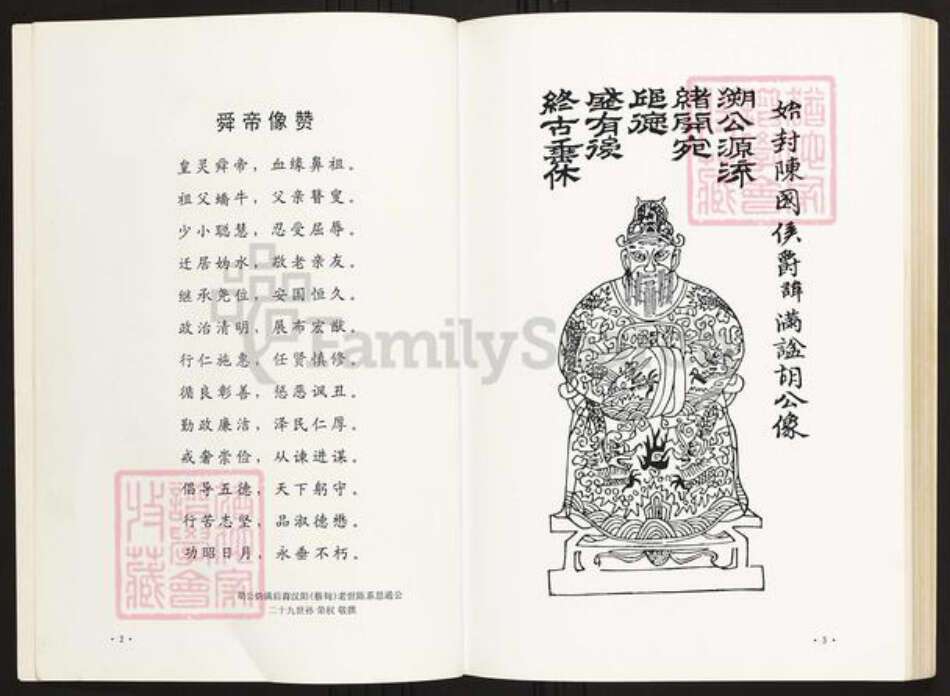 舜帝像赞
皇灵舜帝，血缘鼻祖。
祖父蟜牛，父亲瞽叟。
少小聪慧，忍受屈辱。
迁居妫水，敬老亲友。
继承尧位，安国恒久。
政治清明，展布宏猷。
行仁施惠，任贤慎修。
循良彰善，惩恶讽丑。
勤政廉洁，泽民仁厚。
戒奢崇俭，从谏进谋。
倡导五德，天下躬守。
行苦志坚，品淑德懋。
功昭日月，永垂不朽。
二十九世孙 荣权 敬撰
· 2 ·
始封陳國侯爵諱滿謚胡公像
溯公源流
緒開宛
邱德
盛有後
終古垂休
· 3 ·
FamilyS